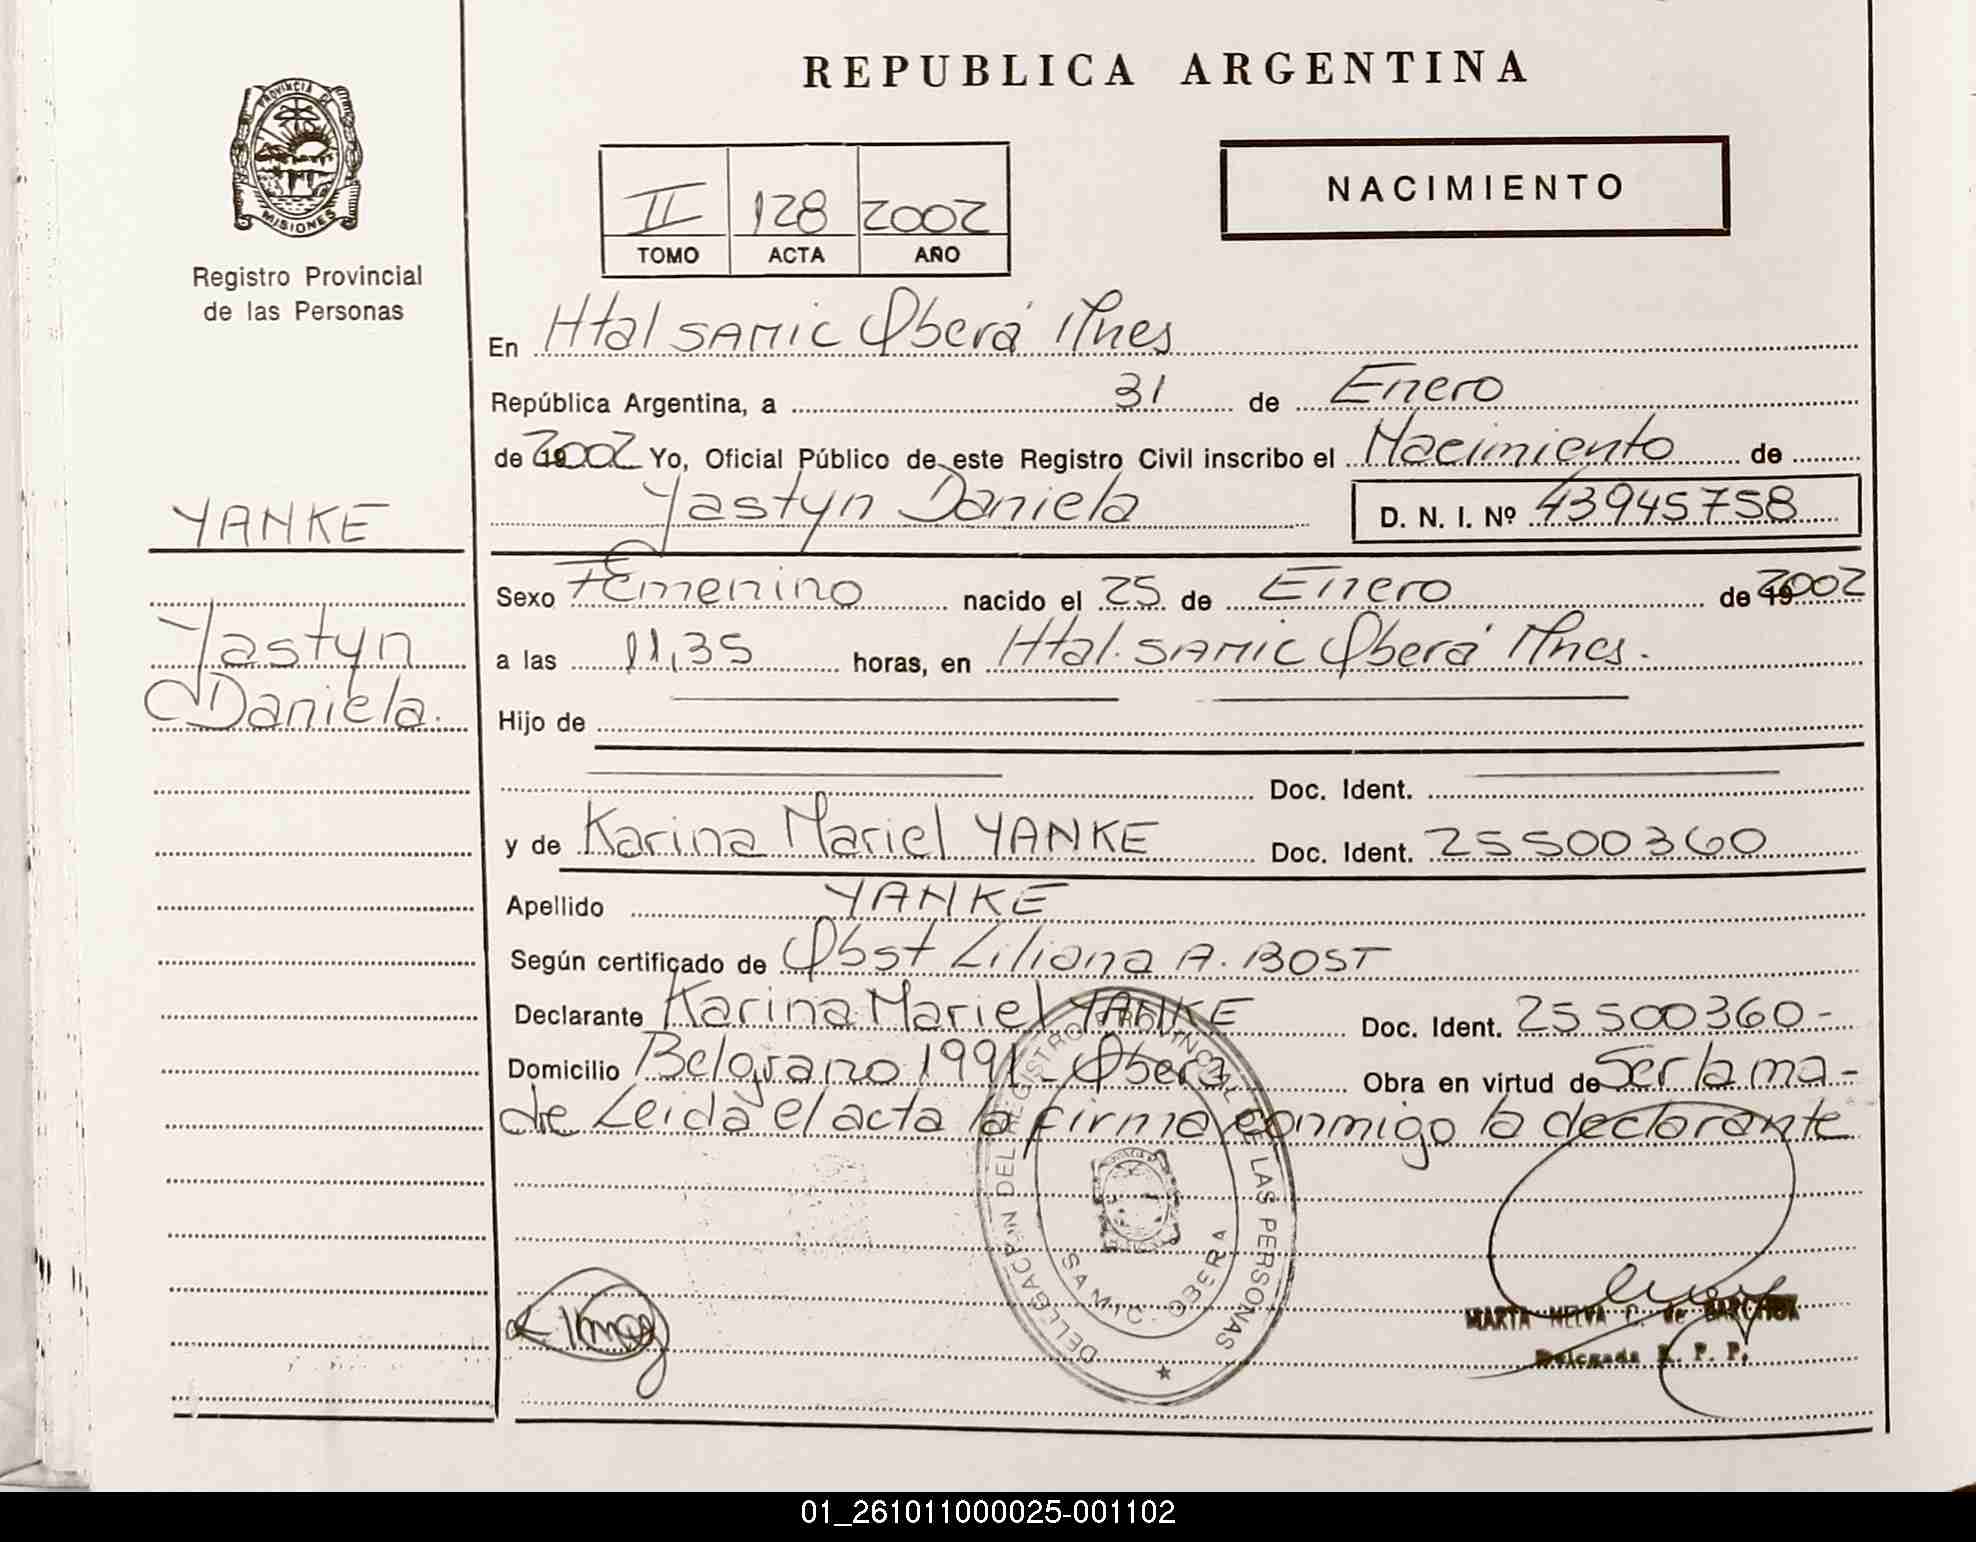 REPUBLICA ARGENTINA
PROVINCIA DE
MISIONES
Registro Provincial
de las Personas
II 128 2002
TOMO ACTA AÑO
NACIMIENTO
En Htal SAMIC Oberá Mnes
República Argentina, a 31 de Enero
de 2002 Yo, Oficial Público de este Registro Civil inscribo el Nacimiento de
Yastyn Daniela D. N. I. Nº 43945758
YANKE
Yastyn
Daniela.
Sexo Femenino nacido el 25 de Enero de 2002
a las 11,35 horas, en Htal. SAMIC Oberá Mnes.
Hijo de
Doc. Ident.
y de Karina Mariel YANKE Doc. Ident. 25500360
Apellido YANKE
Según certificado de Obst Liliana A. BOST
Declarante Karina Mariel YANKE Doc. Ident. 25500360-
Domicilio Belgrano 1991- Oberá Obra en virtud de Ser la ma-
dre Leida el acta la firma conmigo la declarante
DELEGACIÓN DEL REGISTRO PROVINCIAL DE LAS PERSONAS
SAMIC. OBERA
MARTA NELVA C. de
Delegada R. P. P.
01_261011000025-001102